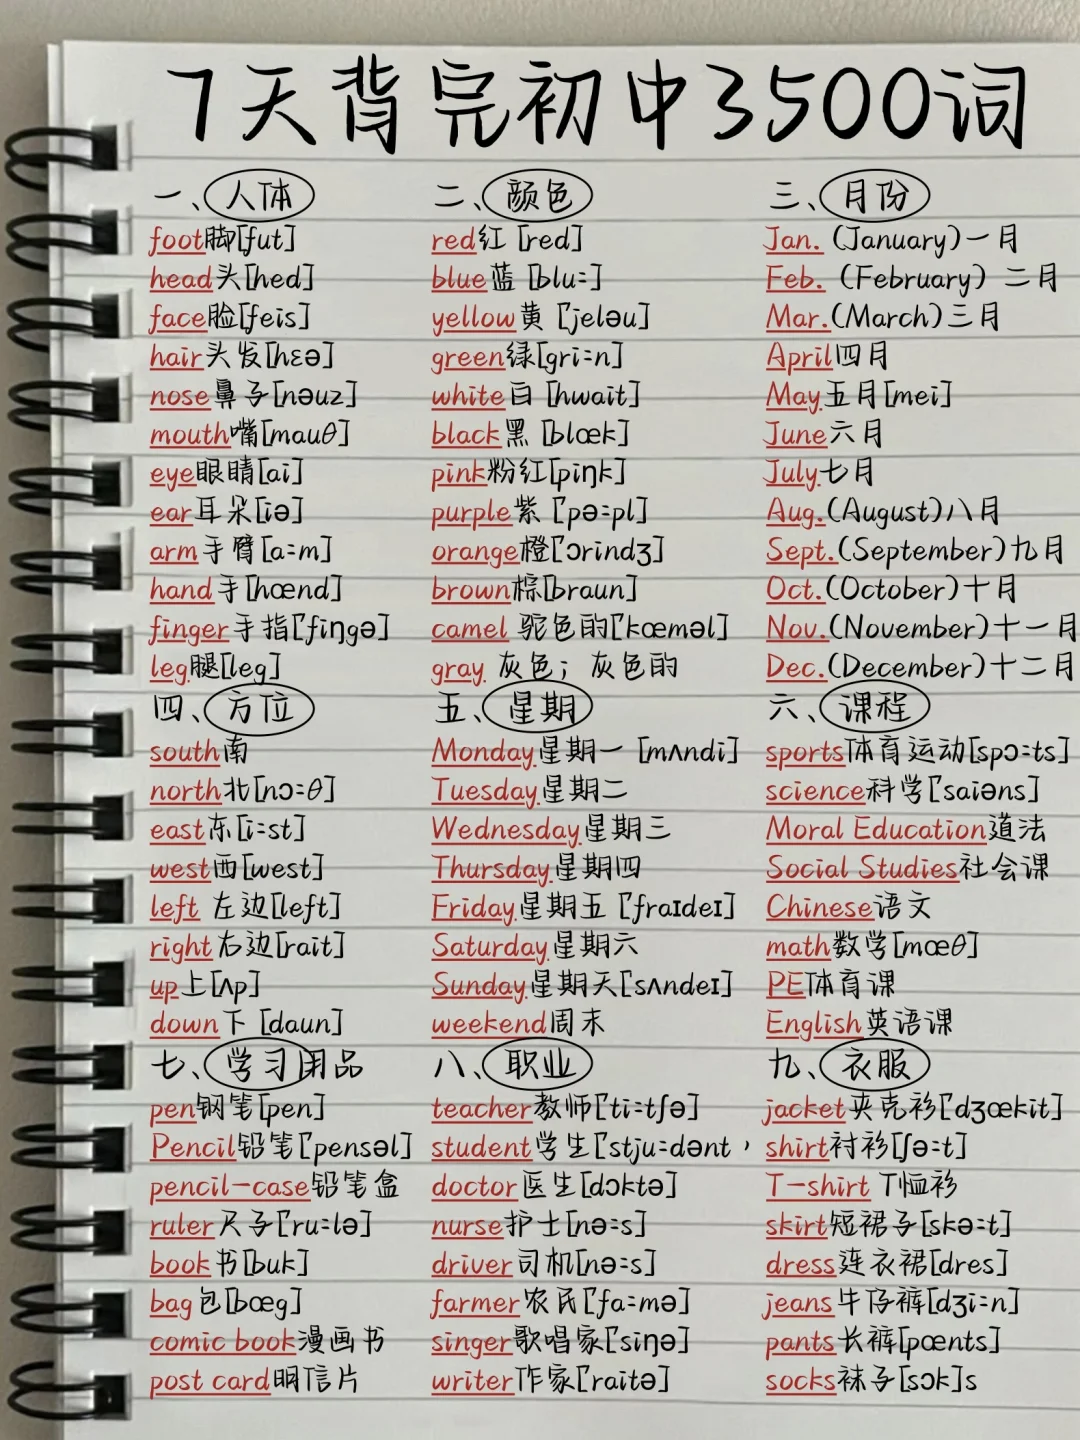 7天背完初中3500词
一、人体
foot脚[fut]
head头[hed]
face脸[feis]
hair头发[hɛə]
nose鼻子[nəuz]
mouth嘴[mauθ]
eye眼睛[ai]
ear耳朵[iə]
arm手臂[a:m]
hand手[hænd]
finger手指['fiŋgə]
leg腿[leg]
二、颜色
red红 [red]
blue蓝 [blu:]
yellow黄 ['jeləu]
green绿[gri:n]
white白 [hwait]
black黑 [blæk]
pink粉红[piŋk]
purple紫 ['pə:pl]
orange橙['ɔrindʒ]
brown棕[braun]
camel 驼色的['kæməl]
gray 灰色；灰色的
三、月份
Jan. (January)一月
Feb. (February) 二月
Mar.(March)三月
April四月
May五月[mei]
June六月
July七月
Aug.(August)八月
Sept.(September)九月
Oct.(October)十月
Nov.(November)十一月
Dec.(December)十二月
四、方位
south南
north北[nɔ:θ]
east东[i:st]
west西[west]
left 左边[left]
right右边[rait]
up上[ʌp]
down下 [daun]
五、星期
Monday星期一 [mʌndi]
Tuesday星期二
Wednesday星期三
Thursday星期四
Friday星期五 ['fraɪdeɪ]
Saturday星期六
Sunday星期天['sʌndeɪ]
weekend周末
六、课程
sports体育运动[spɔ:ts]
science科学['saiəns]
Moral Education道法
Social Studies社会课
Chinese语文
math数学[mæθ]
PE体育课
English英语课
七、学习用品
pen钢笔[pen]
Pencil铅笔['pensəl]
pencil-case铅笔盒
ruler尺子['ru:lə]
book书[buk]
bag包[bæg]
comic book漫画书
post card明信片
八、职业
teacher教师['ti:tʃə]
student学生['stju:dənt，
doctor医生['dɔktə]
nurse护士[nə:s]
driver司机[nə:s]
farmer农民['fa:mə]
singer歌唱家['siŋə]
writer作家['raitə]
九、衣服
jacket夹克衫['dʒækit]
shirt衬衫[ʃə:t]
T-shirt T恤衫
skirt短裙子[skə:t]
dress连衣裙[dres]
jeans牛仔裤[dʒi:n]
pants长裤[pænts]
socks袜子[sɔk]s